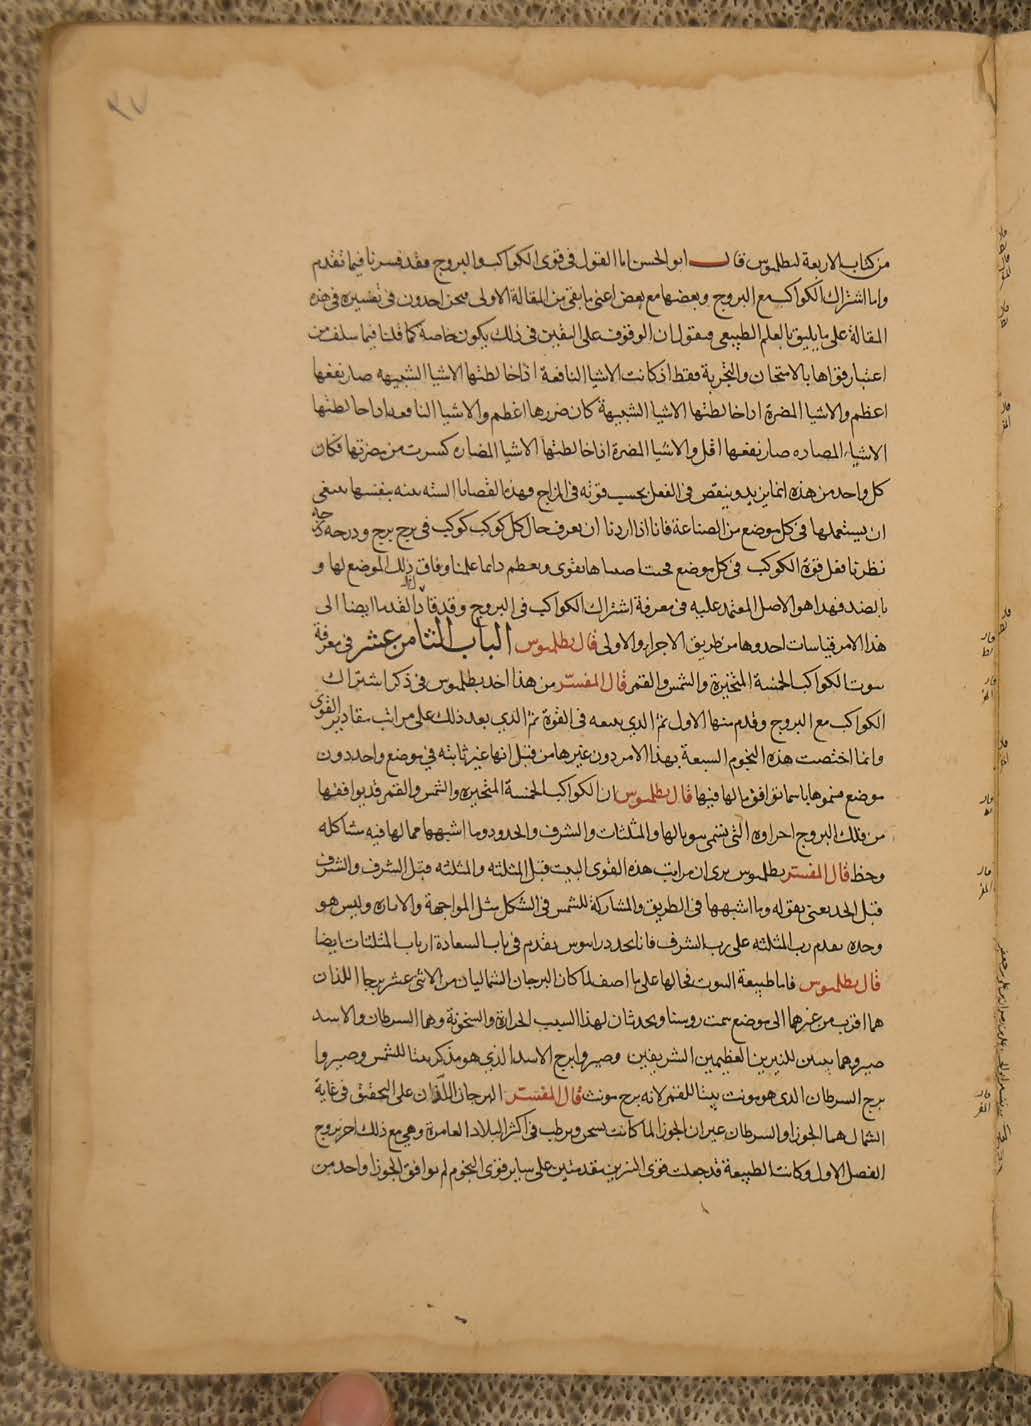 ٢٧
من كتاب الاربعة لبطلميوس قال ابو الحسن اما القول فى قوى الكواكب والبروج فقد فسرنا فيما تقدم
واما اشتراك الكواكب مع البروج وبعضها مع بعض اعنى ما بقى من المقالة الاولى فنحن اخدون فى تفسيره فى هذه
المقالة على ما يليق بالعلم الطبيعى فنقول ان الوقوف على اليقين فى ذلك يكون خاصة كما قلنا فيما سلف من
اعتبار قواها بالامتحان والتجربة فقط اذ كانت الاشيا النافعة اذا خالطتها الاشيا الشبيهه صار نفعها
اعظم والاشيا المضرة اذا خالطتها الاشيا الشبيهة كان ضررها اعظم والاشيا النافعه اذا خالطتها
الاشياء المضاره صار نفعها اقل والاشيا المضرة اذا خالطتها الاشيا المضاره كسرت من مضرتها فكان
كل واحد من هذه انما يزيد وينقص فى الفعل بحسب قوته فى المزاج وهذه القضايا البينه بنفسها ينبغى
ان يستعملها فى كل موضع من الصناعة فانا اذا اردنا ان نعرف حال كل كوكب كوكب فى برج برج ودرجه درجه
نظرنا فعل قوة الكوكب فى كل موضع فمتى صبناها تقوى وتعظم دايما علمنا وفاق ذلك الموضع لها و
بالضد فهذا هو الاصل المعتمد عليه فى معرفة اشتراك الكواكب فى البروج وقد قاد القدما ايضا الى
هذا الامر قياسات احدوها من طريق الاجرا والاولى قال بطلميوس الباب الثامن عشر فى معرفة
بيوت الكواكب الخمسة المتحيرة والشمس والقمر قال المفسر من هذا اخد بطلميوس فى ذكر اشتراك
الكواكب مع البروج وقدم منها الاول ثم الذي يتبعه فى القوة ثم الذي بعد ذلك على مراتب مقادير القوى
وانما اختصت هذه النجوم السبعة بهذا الامر دون غيرها من قبل انها غير ثابته في موضع واحد دون
موضع فسموها باسما توافق ما لها فيها قال بطلميوس ان الكواكب الخمسة المتحيره والشمس والقمر قد يوافقها
من فلك البروج اجزاوه التى تسمى بيوتا لها والمثلثات والشرف والحدود وما اشبهها مما لها فيه مشاكله
وحظ قال المفسر بطلميوس يرى ان مراتب هذه القوى البيت قبل المثلثه والمثلثه قبل الشرف والشرف
قبل الحد يعنى بقوله وما اشبهها فى الطريق والمشاركة للشمس فى الشكل مثل المواجهة والانارة وليس هو
وحده يقدم رب المثلثه على رب الشرف فانا نجد دراسوس يقدم فى باب السعادة ارباب المثلثات ايضا
قال بطلميوس فاما طبيعة البيوت فحالها على ما اصف لما كان البرجان الشماليان من الاثنى عشر برجا اللذان
هما اقرب من غيرهما الى موضع سمت روسنا ويحدثان لهذا السبب الحرارة والسخونة وهما السرطان والاسد
صيروهما بيتين للنيرين العظيمين الشريفين وصيروا برج الاسد الذي هو مذكر بيتا للشمس وصيروا
برج السرطان الذى هو مونث بيتا للقمر لانه برج مونث قال المفسر البرجان اللذان على الحقيقى فى غاية
الشمال هما الجوزا والسرطان غير ان الجوزا لما كانت تسخن وترطب فى اكثر البلاد العامرة وهي مع ذلك اخر بروج
الفصل الاول وكانت الطبيعة قد جعلت قوى النيرين متقدمتين على ساير قوى النجوم لم توافق الجوزا واحد من